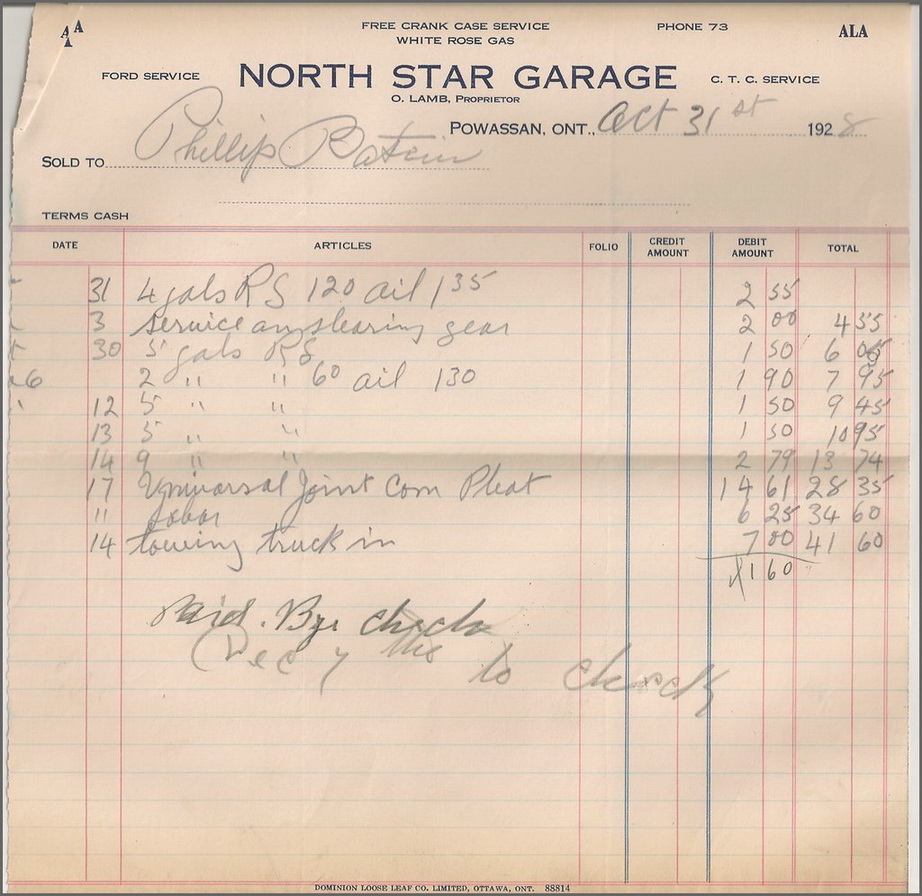 AA FREE CRANK CASE SERVICE PHONE 73 ALA
WHITE ROSE GAS
FORD SERVICE NORTH STAR GARAGE C. T. C. SERVICE
O. LAMB, PROPRIETOR
POWASSAN, ONT., Oct 31st 1928
SOLD TO Phillip
TERMS CASH
DATE ARTICLES FOLIO CREDIT AMOUNT DEBIT AMOUNT TOTAL
31 4 gals R S 120 oil 135 2 55
3 Service on stearing gear 2 00 4 55
30 5 gals R S 1 50 6 05
2 " " 60 oil 130 1 90 7 95
" 12 5 " " 1 50 9 45
13 5 " " 1 50 10 95
14 9 " " 2 79 13 74
17 Universal Joint Com Pleat 14 61 28 35
" Labor 6 25 34 60
14 towing truck in 7 00 41 60
41 60
Paid. Bye check
Dec 7 to check
DOMINION LOOSE LEAF CO. LIMITED, OTTAWA, ONT. 88814